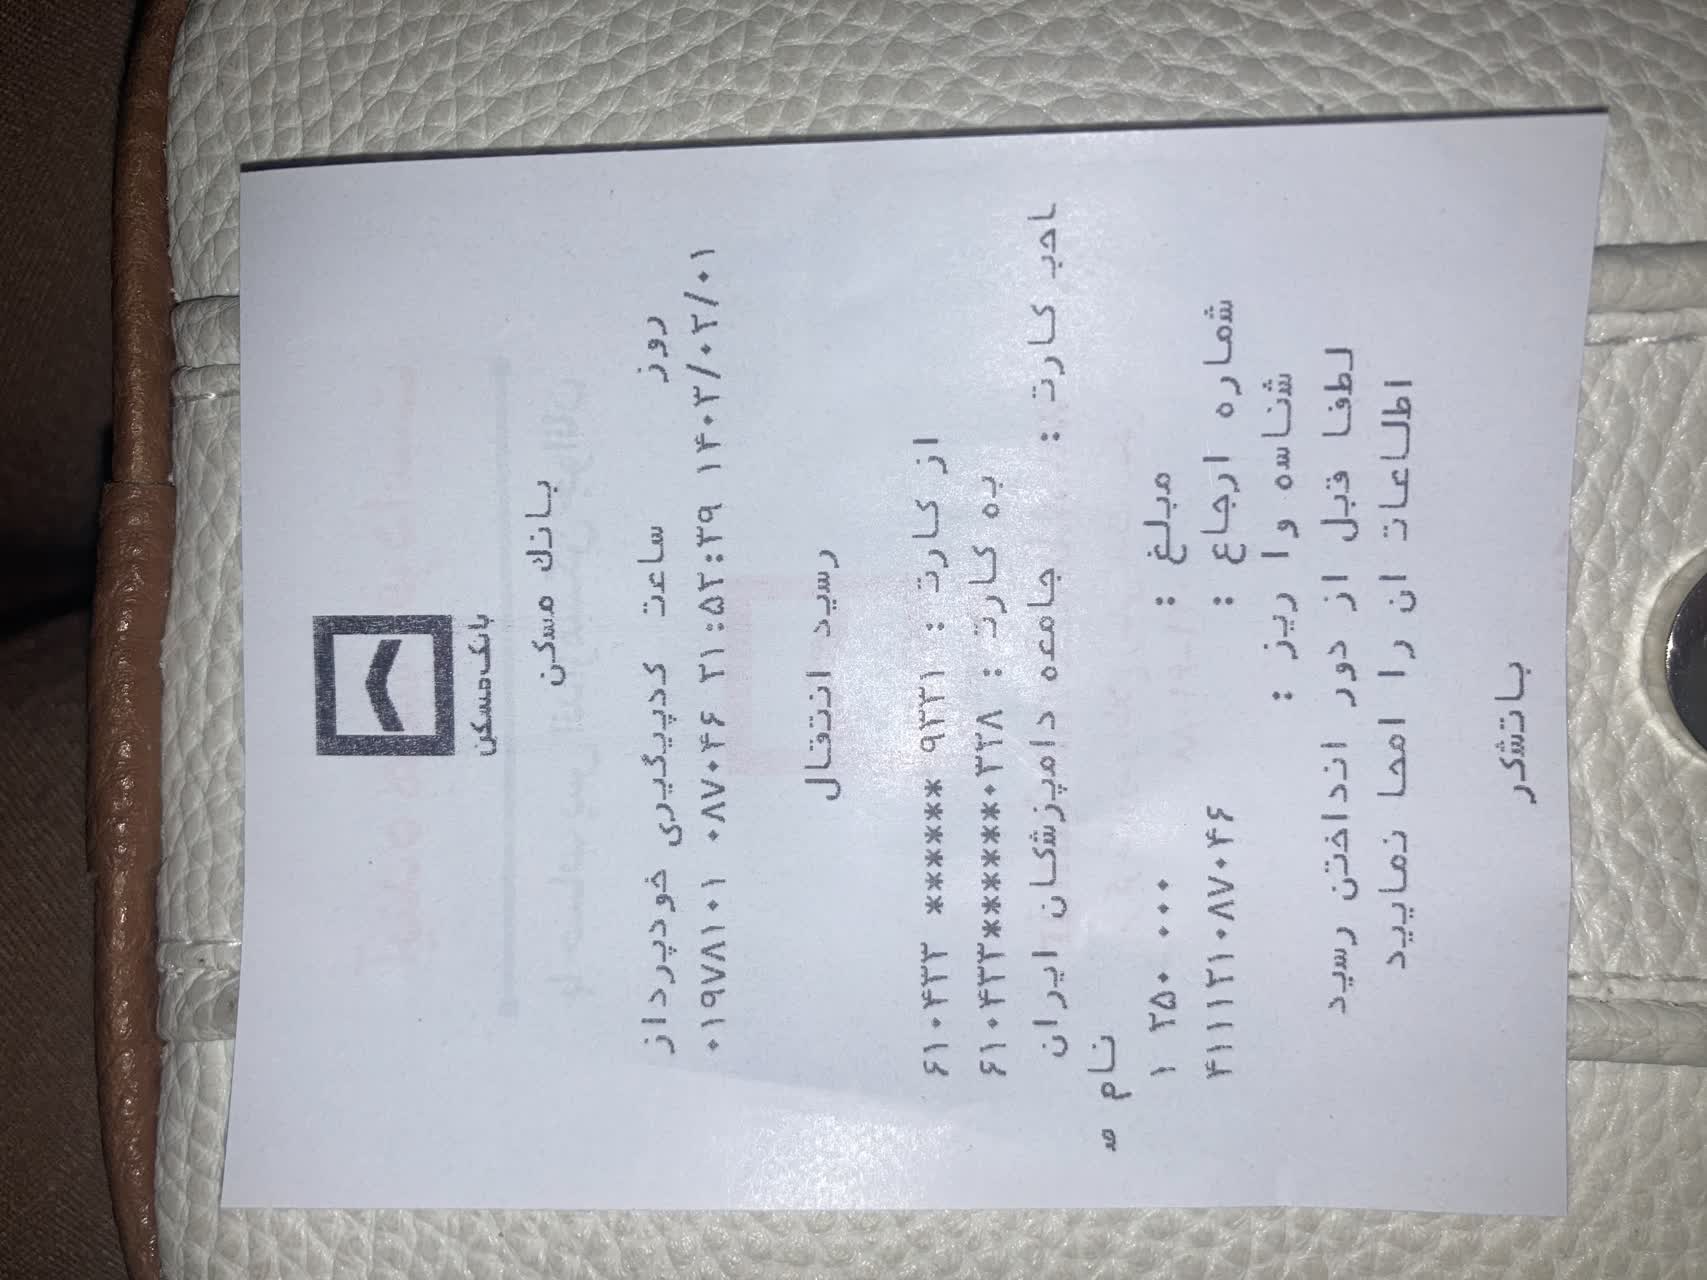 بانک مسکن
بانک مسکن
روز ساعت کدپیگیری خودپرداز
۰۱۹۷۸۱۰۱ ۰۸۷۰۴۶ ۲۱:۵۲:۳۹ ۱۴۰۳/۰۲/۰۱
رسید انتقال
از کارت : ۹۳۳۱ ****** ۶۱۰۴۳۳
به کارت : ۶۱۰۴۳۳******۰۳۳۸
احب کارت : جامعه دامپزشکان ایران
نام ص
مبلغ : ۱ ۲۵۰ ۰۰۰
شماره ارجاع : ۴۱۱۱۲۱۰۸۷۰۴۶
شناسه وا ریز :
لطفا قبل از دور انداختن رسید
اطلاعات ان را امحا نمایید
باتشکر